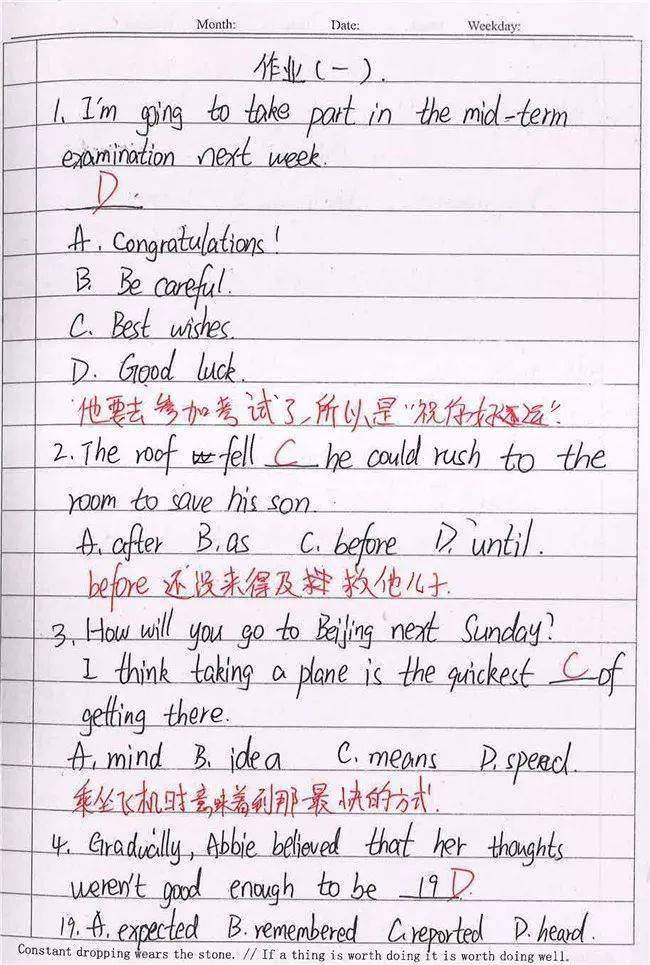 Month: Date: Weekday:
作业(一).
1. I'm going to take part in the mid-term
examination next week.
D.
A. Congratulations!
B. Be careful.
C. Best wishes.
D. Good luck.
他要去参加考试了,所以是"祝你好运".
2. The roof fell C he could rush to the
room to save his son.
A. after B. as C. before D. until.
before 还没来得及救他儿子.
3. How will you go to Beijing next Sunday?
I think taking a plane is the quickest C of
getting there.
A. mind B. idea C. means D. speed.
乘坐飞机时意味着到那最快的方式.
4. Gradually, Abbie believed that her thoughts
weren't good enough to be 19 D.
19. A. expected B. remembered C. reported D. heard.
Constant dropping wears the stone. // If a thing is worth doing it is worth doing well.